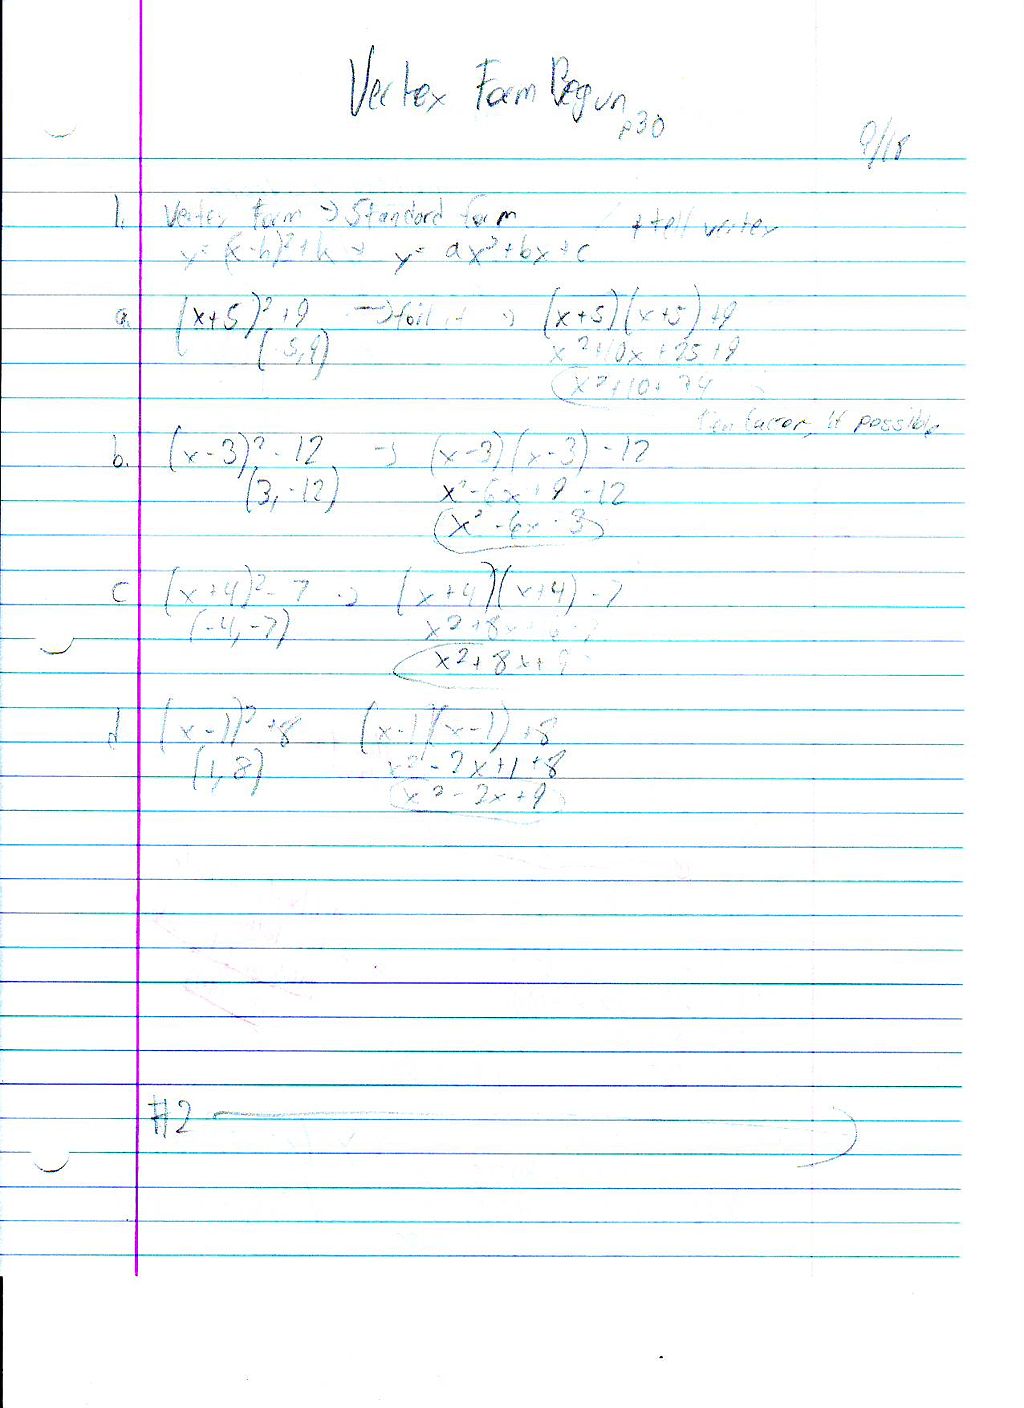 Vertex Form Begun
p30
9/18
1. Vertex Form → Standard form + tell vertex
y = (x-h)² + k → y = ax² + bx + c
a. (x+5)² + 9 → foil it → (x+5)(x+5) + 9
(-5, 9) x² + 10x + 25 + 9
x² + 10 + 34
then factor, if possible
b. (x-3)² - 12 → (x-3)(x-3) - 12
(3, -12) x² - 6x + 9 - 12
x² - 6x - 3
c (x+4)² - 7 → (x+4)(x+4) - 7
(-4, -7) x² + 8x
x² + 8x + 9
d (x-1)² + 8 (x-1)(x-1) + 8
(1, 8) x² - 2x + 1 + 8
x² - 2x + 9
#2